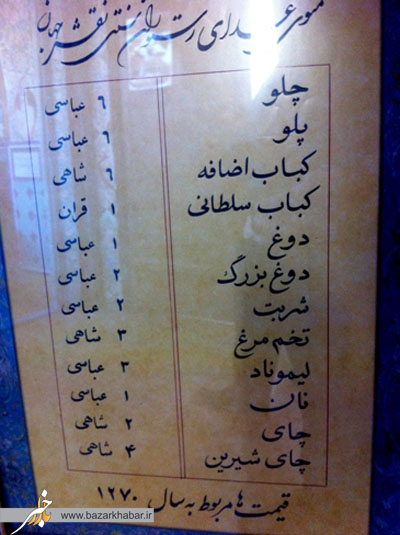 منوی غذای رستوران سنتی نقش جهان
چلو ۶ عباسی
پلو ۶ عباسی
کباب اضافه ۶ شاهی
کباب سلطانی ۱ قران
دوغ ۱ عباسی
دوغ بزرگ ۲ عباسی
شربت ۲ عباسی
تخم مرغ ۳ شاهی
لیموناد ۳ عباسی
نان ۱ عباسی
چای ۲ شاهی
چای شیرین ۴ شاهی
قیمت ها مربوط به سال ۱۲۷۰
بازار خبر
www.bazarkhabar.ir